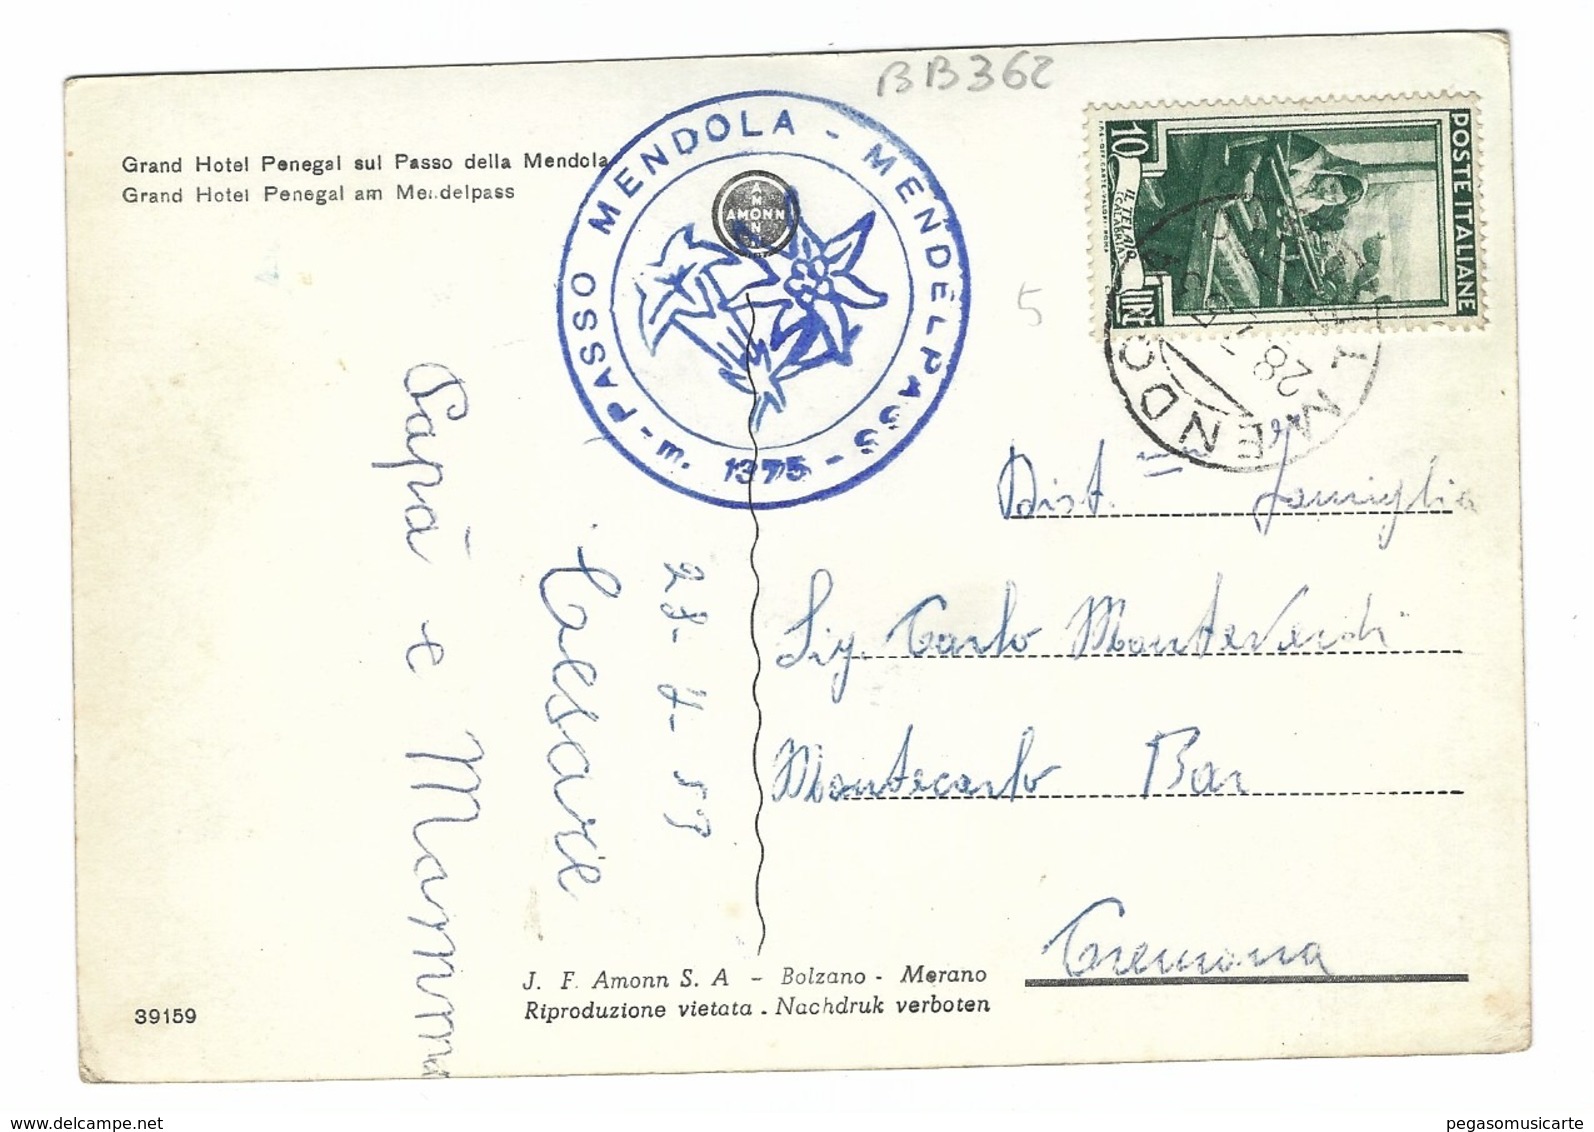 BB362
Grand Hotel Penegal sul Passo della Mendola
Grand Hotel Penegal am Mendelpass
PASSO MENDOLA - MENDELPASS - m. 1375 -
AMONN
POSTE ITALIANE
10
LIRE
IL TELAIO
(CALABRIA)
MENDOLA
28
5
Papà e Mamma
Cesare
Dist. Famiglia
Sig. Carlo Monteverdi
Montecarlo Bar
Cremona
J. F. Amonn S. A - Bolzano - Merano
Riproduzione vietata . Nachdruk verboten
39159
pegasomusicarte